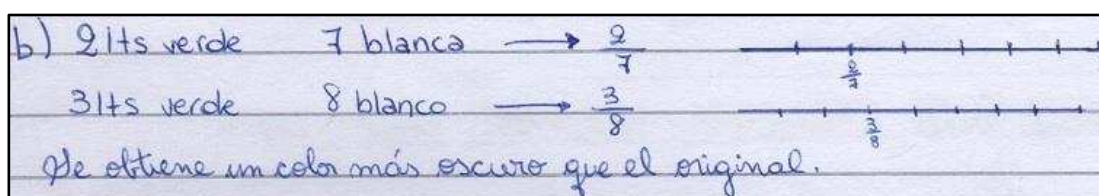 b) 2 lts verde 7 blanca → 2/7 2/7
3 lts verde 8 blanco → 3/8 3/8
Se obtiene un color más oscuro que el original.